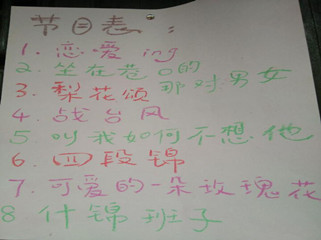 节目表:
1. 恋爱ing
2. 坐在巷口的那对男女
3. 梨花颂
4 战台风
5 叫我如何不想他
6. 四段锦
7. 可爱的一朵玫瑰花
8 什锦班子